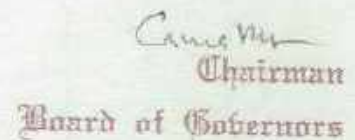 Chairman
Board of Governors